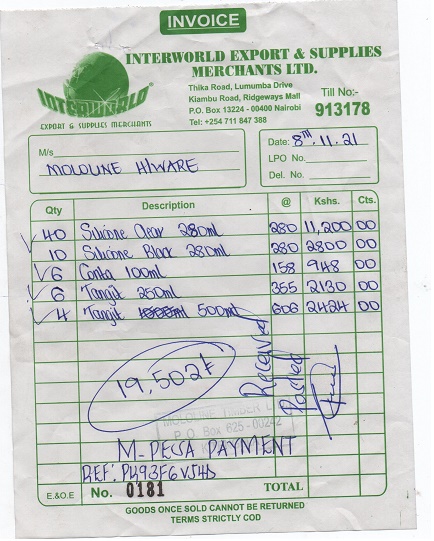 INVOICE
INTERWORLD EXPORT & SUPPLIES
MERCHANTS LTD.
INTERWORLD
EXPORT & SUPPLIES MERCHANTS
Thika Road, Lumumba Drive
Kiambu Road, Ridgeways Mall
P.O. Box 13224 - 00400 Nairobi
Tel: +254 711 847 388
Till No:-
913178
M/s
MOLOLINE H/WARE
Date: 8TH.11.21
LPO No.
Del. No.
Qty Description @ Kshs. Cts.
40 Silicone Clear 280ml 280 11,200 00
10 Silicone Black 280ml 280 2800 00
6 Conta 100ml 158 948 00
6 Tangit 250ml 355 2130 00
4 Tangit 500ml 606 2424 00
19,502/=
Received
MOLOLINE TIMBER
P.O. Box 625 - 00242
M-PESA PAYMENT
REF: PK93F6VJ4D
E.&O.E No. 0181 TOTAL
GOODS ONCE SOLD CANNOT BE RETURNED
TERMS STRICTLY COD